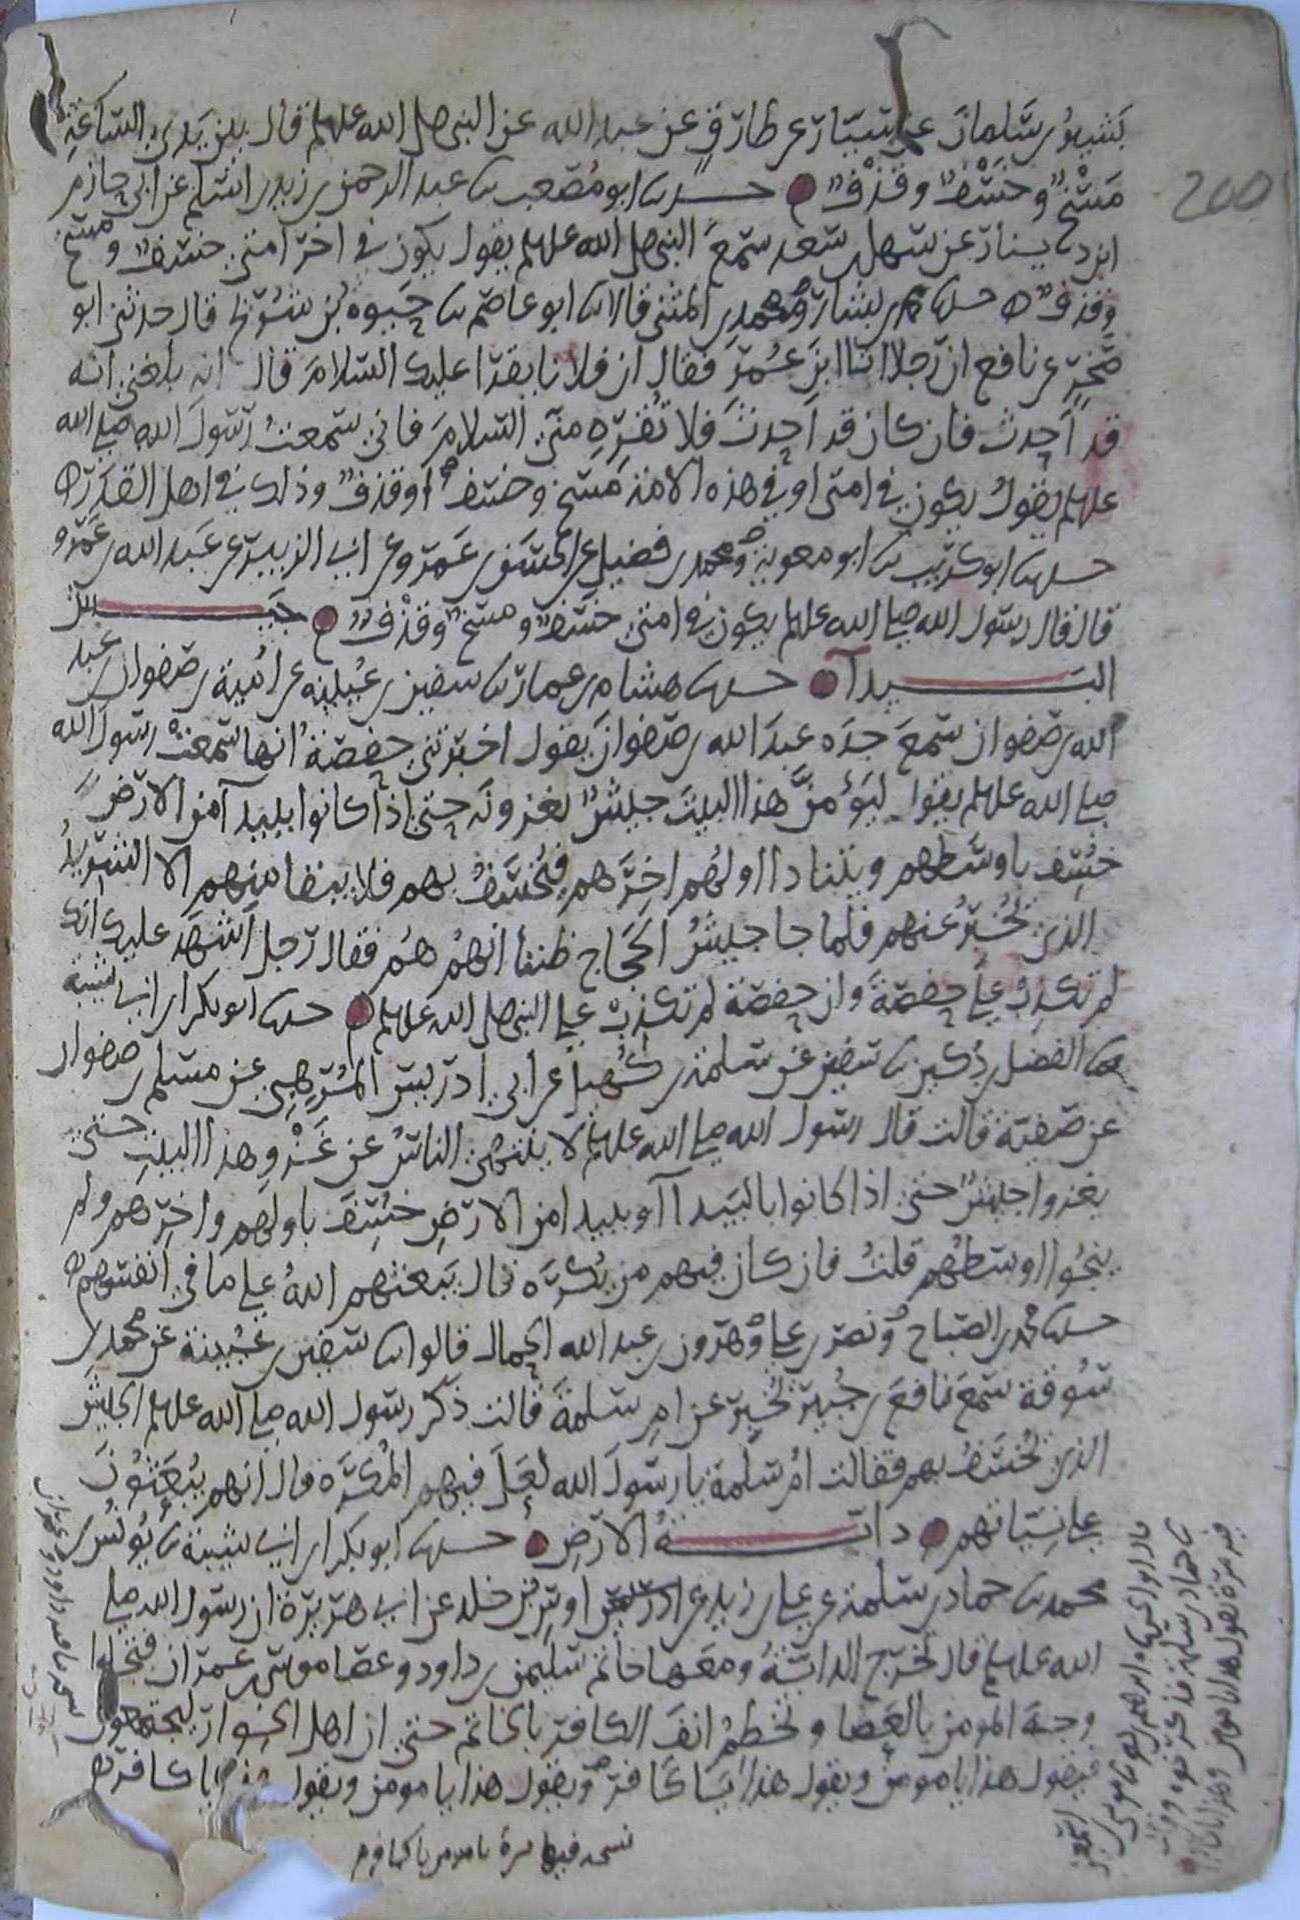 بشير بن سلمان عن سيار عن طارق عن عبد الله عن النبي صلى الله عليه وسلم قال بين يدي الساعة
مسخ وخسف وقذف حدثنا ابو مصعب ثنا عبد الرحمن بن زيد بن اسلم عن ابي حازم
ابن دينار عن سهل بن سعد سمع النبي صلى الله عليه وسلم يقول يكون في اخر امتي خسف ومسخ
وقذف حدثنا محمد بن بشار ومحمد بن المثنى قالا ثنا ابو عاصم ثنا حيوه بن شريح قال حدثني ابو
صخر عن نافع ان رجلا اتا ابن عمر فقال ان فلانا يقرا عليك السلام قال انه بلغني انه
قد احدث فان كان قد احدث فلا تقره مني السلام فاني سمعت رسول الله صلى الله
عليه وسلم يقول يكون في امتي او في هذه الامة مسخ وخسف او قذف وذلك في اهل القدر
حدثنا ابو كريب ثنا ابو معوية ومحمد بن فضيل عن الحسن بن عمرو عن ابي الزبير عن عبد الله بن عمرو
قال قال رسول الله صلى الله عليه وسلم يكون في امتي خسف ومسخ وقذف جيش
البيدآ حدثنا هشام بن عمار ثنا سفين بن عيينه عن امية بن صفوان بن عبد
الله بن صفوان سمع جده عبد الله بن صفوان يقول اخبرتني حفصة انها سمعت رسول الله
صلى الله عليه وسلم يقول ليؤمن هذا البيت جيش يغزونه حتى اذا كانوا ببيدآ من الارض
خسف باوسطهم ويتنادا اولهم اخرهم فيخسف بهم فلا يبقا منهم الا الشريد
الذي يخبر عنهم فلما جا جيش الحجاج ظننا انهم هم فقال رجل اشهد عليك انك
لم تكذب على حفصة وان حفصة لم تكذب على النبي صلى الله عليه وسلم حدثنا ابو بكر بن ابي شيبة
ثنا الفضل بن دكين ثنا سفين عن سلمة بن كهيل عن ابي ادريس المرهبي عن مسلم بن صفوان
عن صفية قالت قال رسول الله صلى الله عليه وسلم لا ينتهي الناس عن غزو هذا البيت حتى
يغزوا جيش حتى اذا كانوا بالبيدآ او بيدا من الارض خسف باولهم واخرهم ولم
ينجوا اوسطهم قلت فان كان فيهم من يكره قال يبعثهم الله على ما في انفسهم
حدثنا محمد بن الصباح ونصر بن علي وهرون بن عبد الله الحمال قالوا ثنا سفين بن عيينة عن محمد بن
سوقة سمع نافع بن جبير يخبر عن ام سلمة قالت ذكر رسول الله صلى الله عليه وسلم الجيش
الذي يخسف بهم فقالت ام سلمة يا رسول الله لعل فيهم المكره قال انهم يبعثون
على نياتهم دابة الارض حدثنا ابو بكر بن ابي شيبة ثنا يونس بن
محمد ثنا حماد بن سلمة عن علي بن زيد عن اوس بن خلد عن ابي هريرة ان رسول الله صلى
الله عليه وسلم قال تخرج الدابة ومعها خاتم سليمن بن داود وعصا موسى بن عمران فتجلوا
وجه المومن بالعصا وتخطم انف الكافر بالخاتم حتى ان اهل الحوا ليجتمعون
فيقول هذا يا مومن ويقول هذا يا كافر ويقول هذا يا مومن ويقول هذا يا كافر
قال ابو الحسن ثنا ابراهيم بن يحيى ثنا موسى بن اسمعيل
ثنا حماد بن سلمة فذكر نحوه وقال
فيه مرة فيقول هذا يا مومن وهذا يا كافر
200